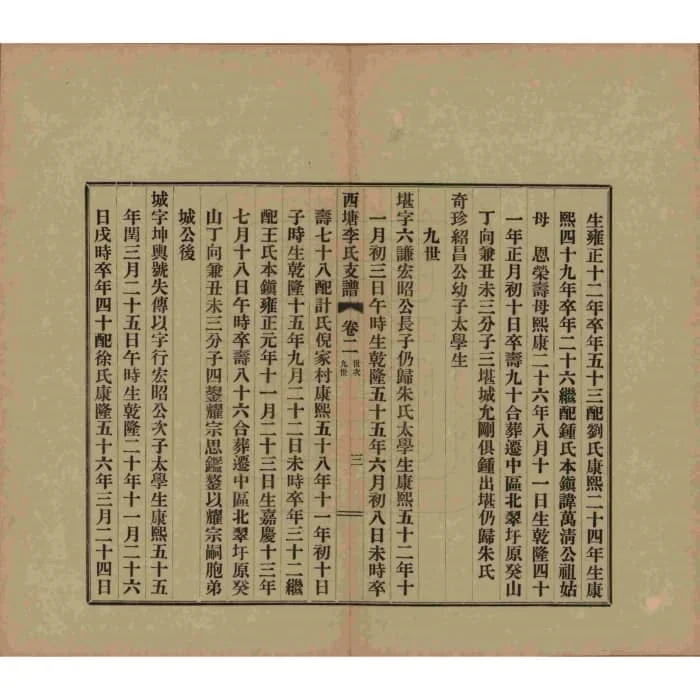 生雍正十二年卒年五十三配劉氏康熙二十四年生康
熙四十九年卒年二十六繼配鍾氏本鎮諱萬淸公祖姑
母　恩榮壽母熙康二十六年八月十一日生乾隆四十
一年正月初十日卒壽九十合葬遷中區北翠圩原癸山
丁向兼丑未三分子三堪城允剛俱鍾出堪仍歸朱氏
奇珍紹昌公幼子太學生
九世
堪字六謙宏昭公長子仍歸朱氏太學生康熙五十二年十
一月初三日午時生乾隆五十五年六月初八日未時卒
西塘李氏支譜　卷二　世次　九世　三
壽七十八配計氏倪家村康熙五十八年十一年初十日
子時生乾隆十五年九月二十二日未時卒年三十二繼
配王氏本鎮雍正元年十一月二十三日生嘉慶十三年
七月十八日午時卒壽八十六合葬遷中區北翠圩原癸
山丁向兼丑未三分子四鋆耀宗思鑑鏊以耀宗嗣胞弟
城公後
城字坤輿號失傳以字行宏昭公次子太學生康熙五十五
年閏三月二十五日午時生乾隆二十年十一月二十六
日戌時卒年四十配徐氏康隆五十六年三月二十四日